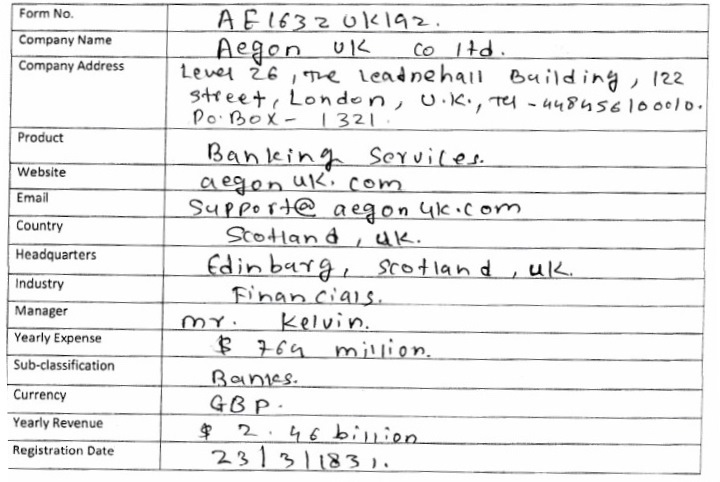 Form No. AE1632UK192.
Company Name Aegon UK Co ltd.
Company Address Level 26, The leadnehall Building, 122
Street, London, U.K., Tel - 448456100010.
Po. Box - 1321.
Product Banking Services.
Website aegonuk.com
Email Support@aegonuk.com
Country Scotland, UK.
Headquarters Edinburg, Scotland, UK.
Industry Financials.
Manager mr. Kelvin.
Yearly Expense $ 764 million.
Sub-classification Banks.
Currency GBP.
Yearly Revenue $ 2.46 billion
Registration Date 23/3/1831.